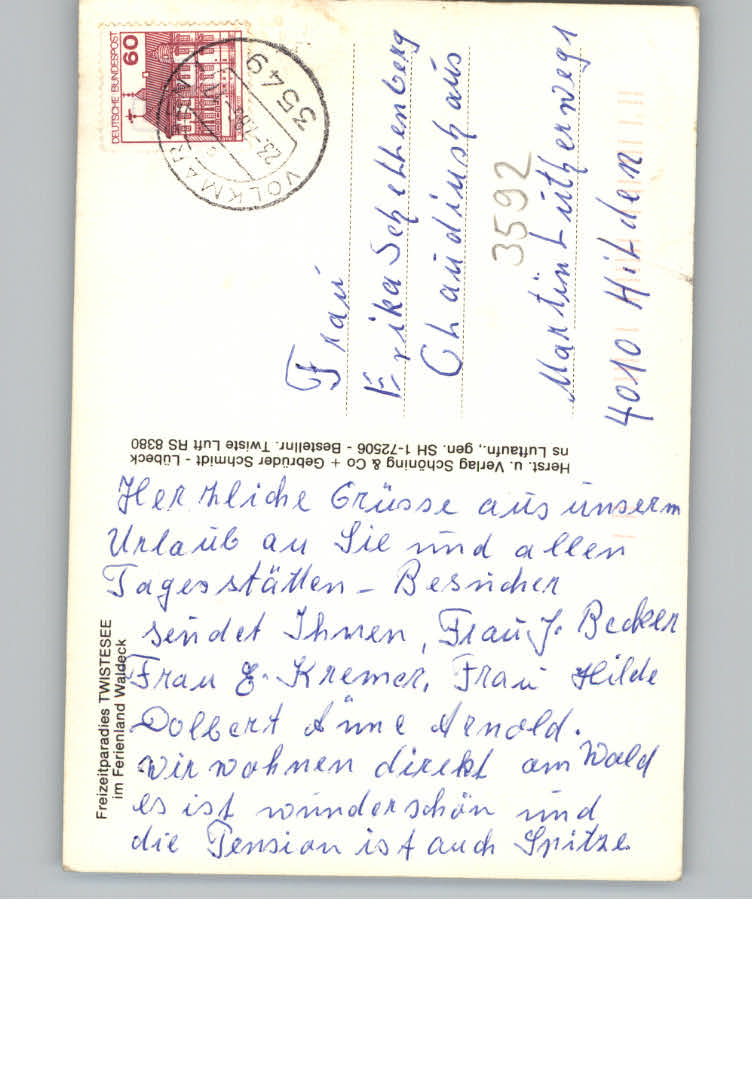 DEUTSCHE BUNDESPOST
60
3549
VOLKMAR
23.
Frau
Erika Schellenberg
Claudiushaus
3592
Martin Lutherweg 1
4010 Hilden
Herst. u. Verlag Schöning & Co + Gebrüder Schmidt - Lübeck
ns Luftaufn., gen. SH 1-72506 - Bestellnr. Twiste Luft RS 8380
Freizeitparadies TWISTESEE
im Ferienland Waldeck
Herzliche Grüsse aus unserm
Urlaub an Sie und allen
Tagesstätten - Besucher
sendet Ihnen, Frau J. Becker
Frau E. Kremer, Frau Hilde
Dolbert Änne Arnold.
wir wohnen direkt am Wald
es ist wunderschön und
die Pension ist auch Spitze.